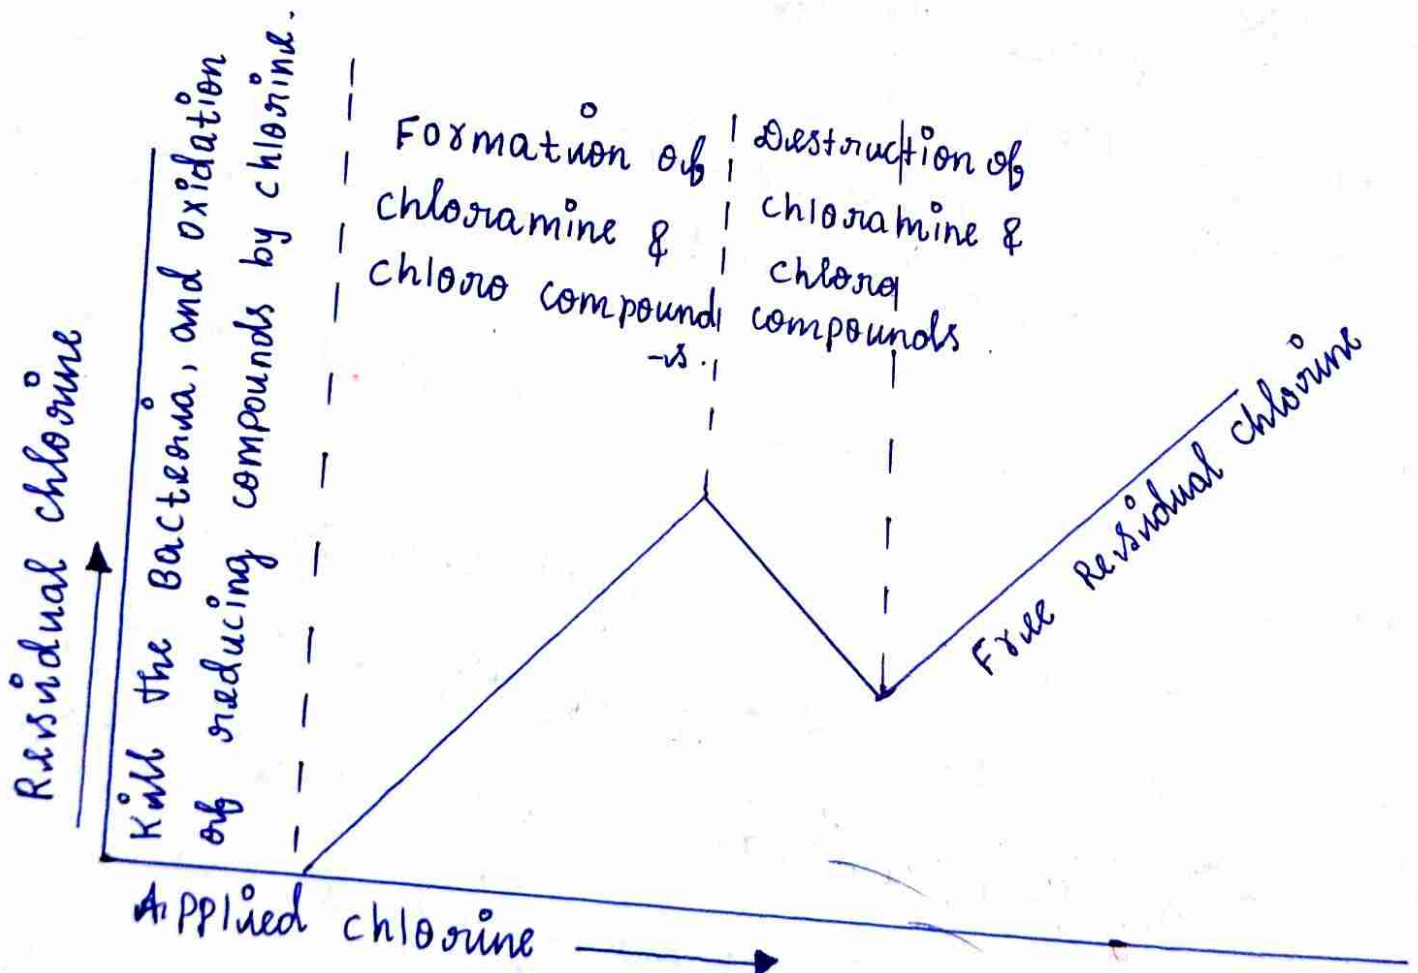 Residual chlorine
Kill the Bacteria, and oxidation
of reducing compounds by chlorine.
Formation of
chloramine &
chloro compound
-s.
Destruction of
chloramine &
chloro
compounds
Free Residual chlorine
Applied chlorine